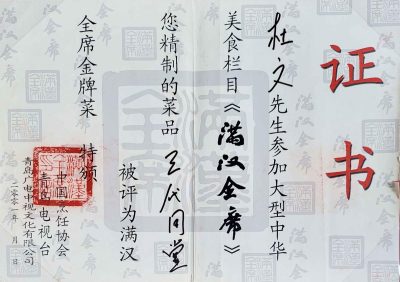 证书
杜文先生参加大型中华
美食栏目《满汉全席》
您精制的菜品 代同堂
被评为满汉
全席金牌菜 特颁
中国烹饪协会
青岛电视台
青岛广电中视文化有限公司
满汉全席